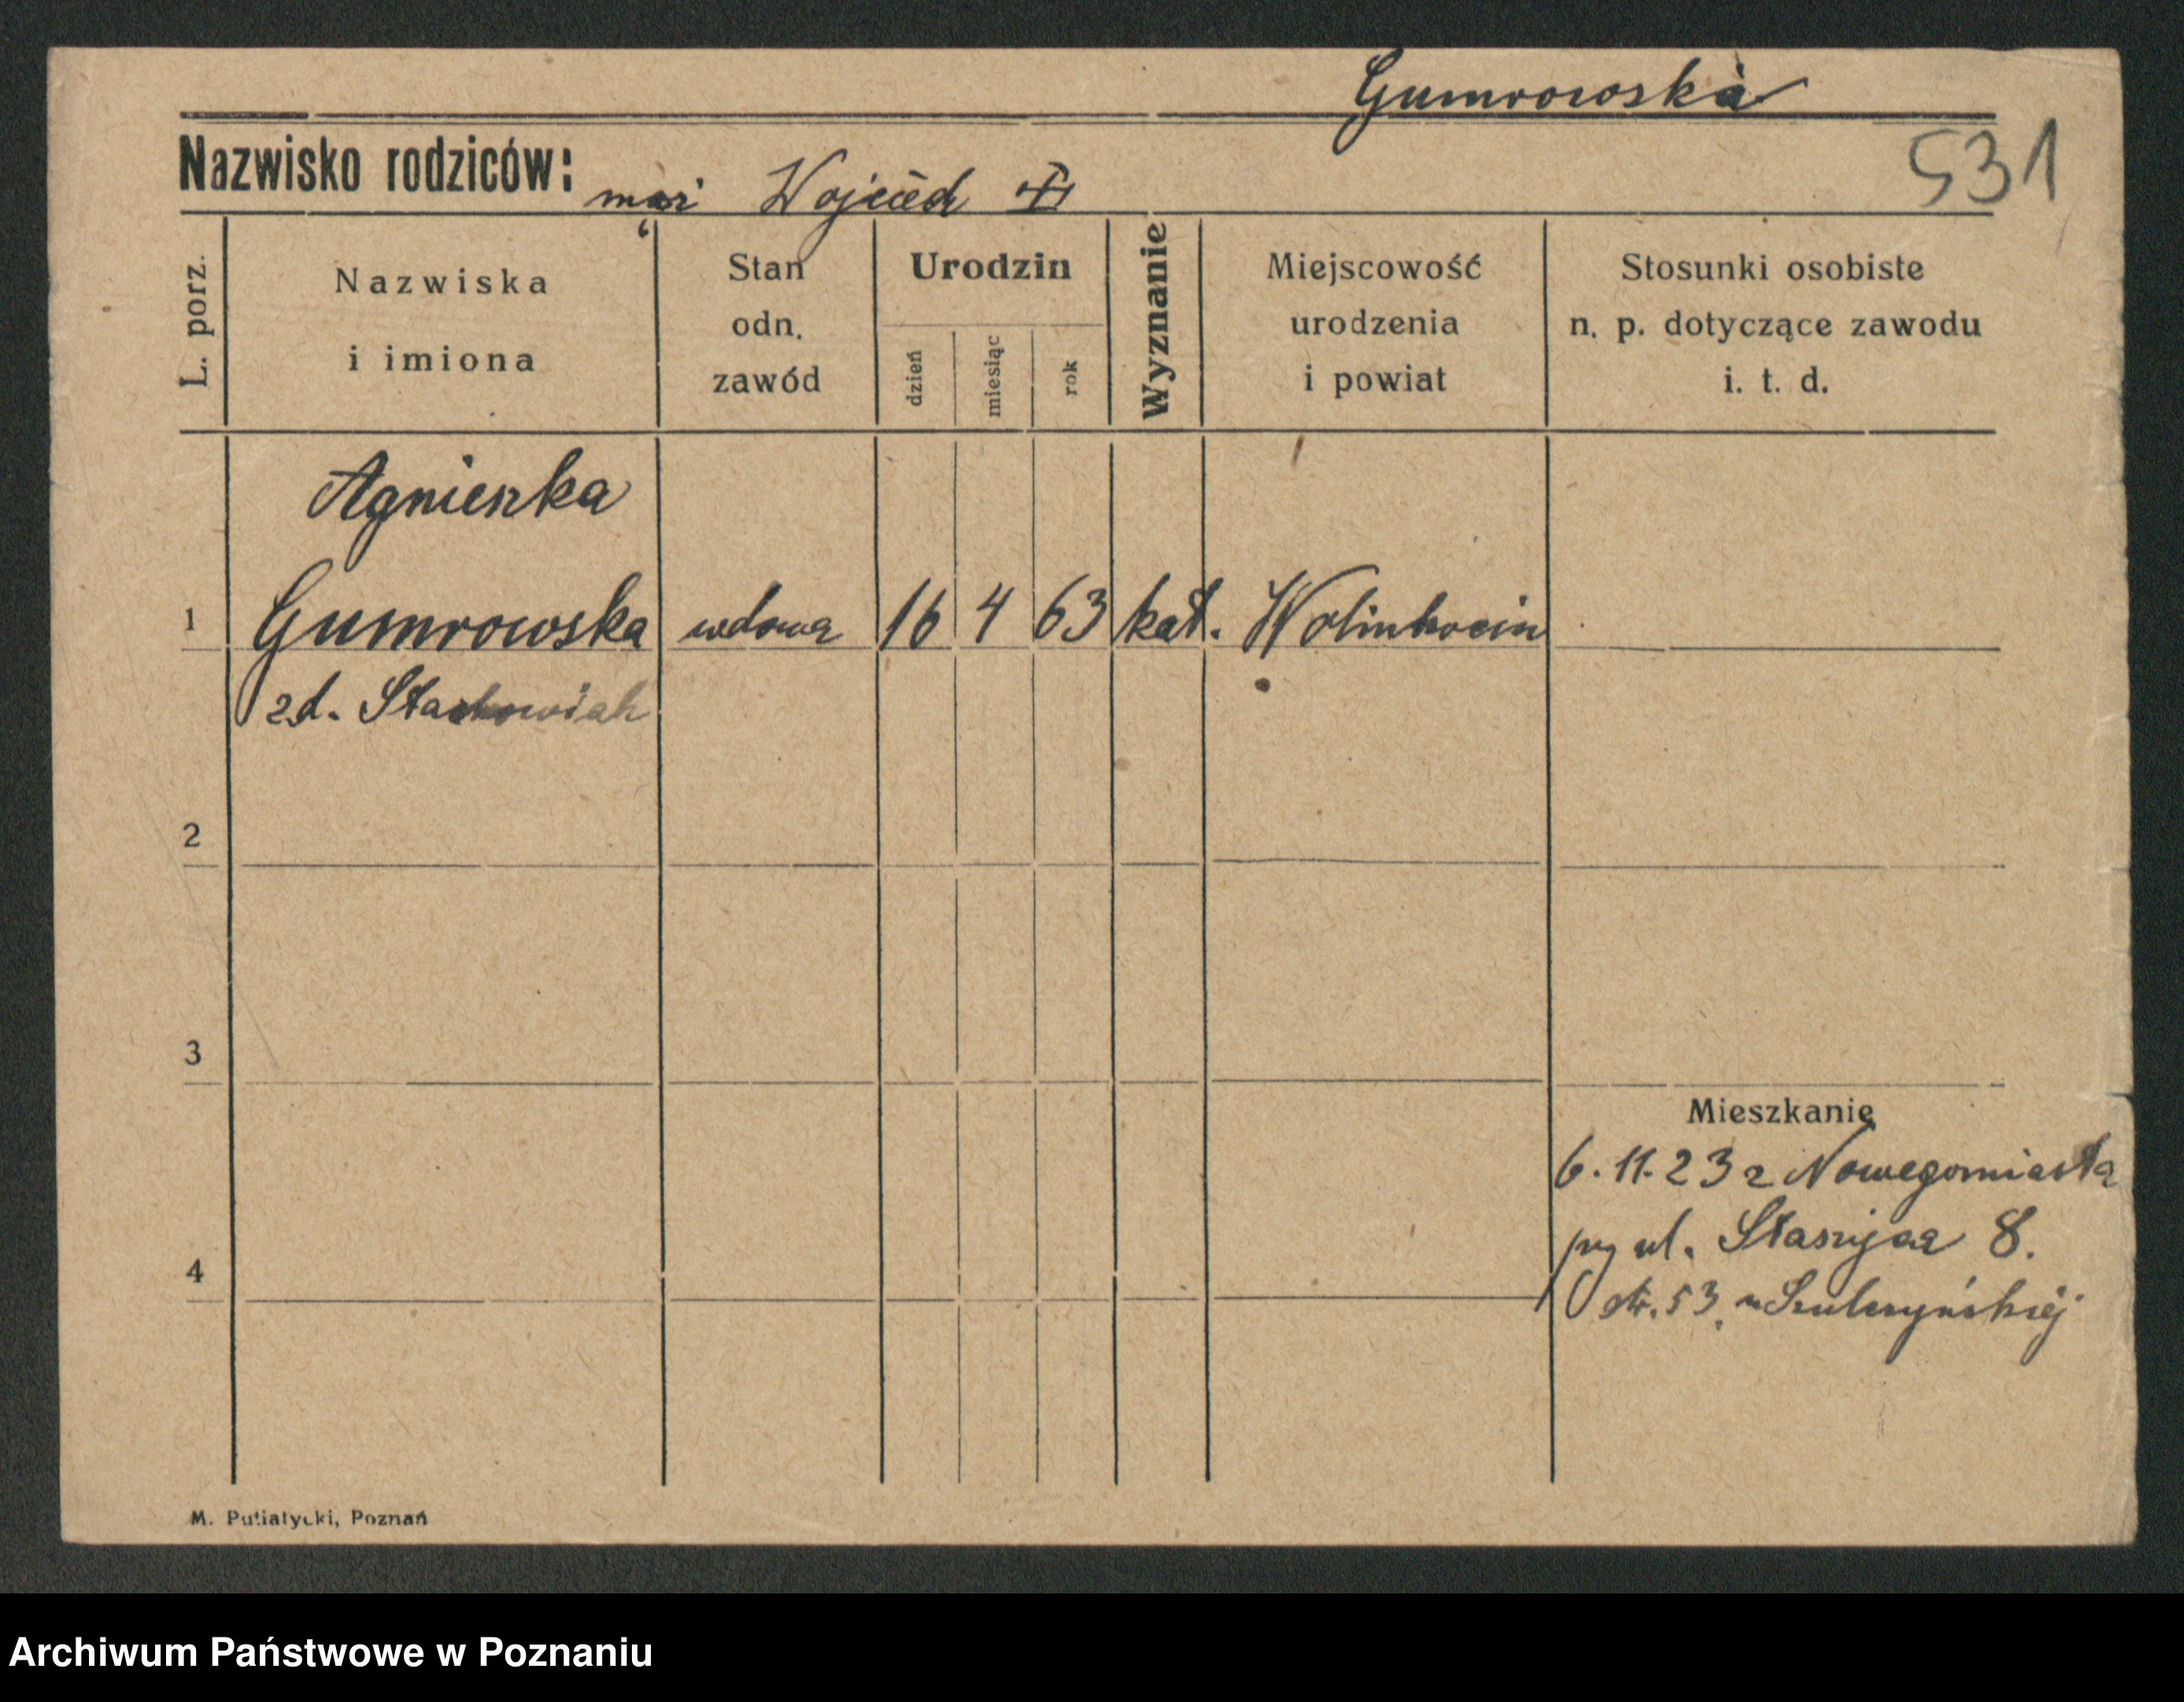 Gumrowska
531
Nazwisko rodziców: mąż Wojciech
L. porz.
Nazwiska
i imiona
Stan
odn.
zawód
Urodzin
dzień
miesiąc
rok
Wyznanie
Miejscowość
urodzenia
i powiat
Stosunki osobiste
n. p. dotyczące zawodu
i. t. d.
Agnieszka
1 Gumrowska wdowa 16 4 63 kat.
zd. Stachowiak
2
3
Mieszkanie
6. 11. 23 z Nowegomiasta
przy ul. Staszyca 8.
4
53 u Szulczyńskiej
M. Putiatycki, Poznań
Archiwum Państwowe w Poznaniu